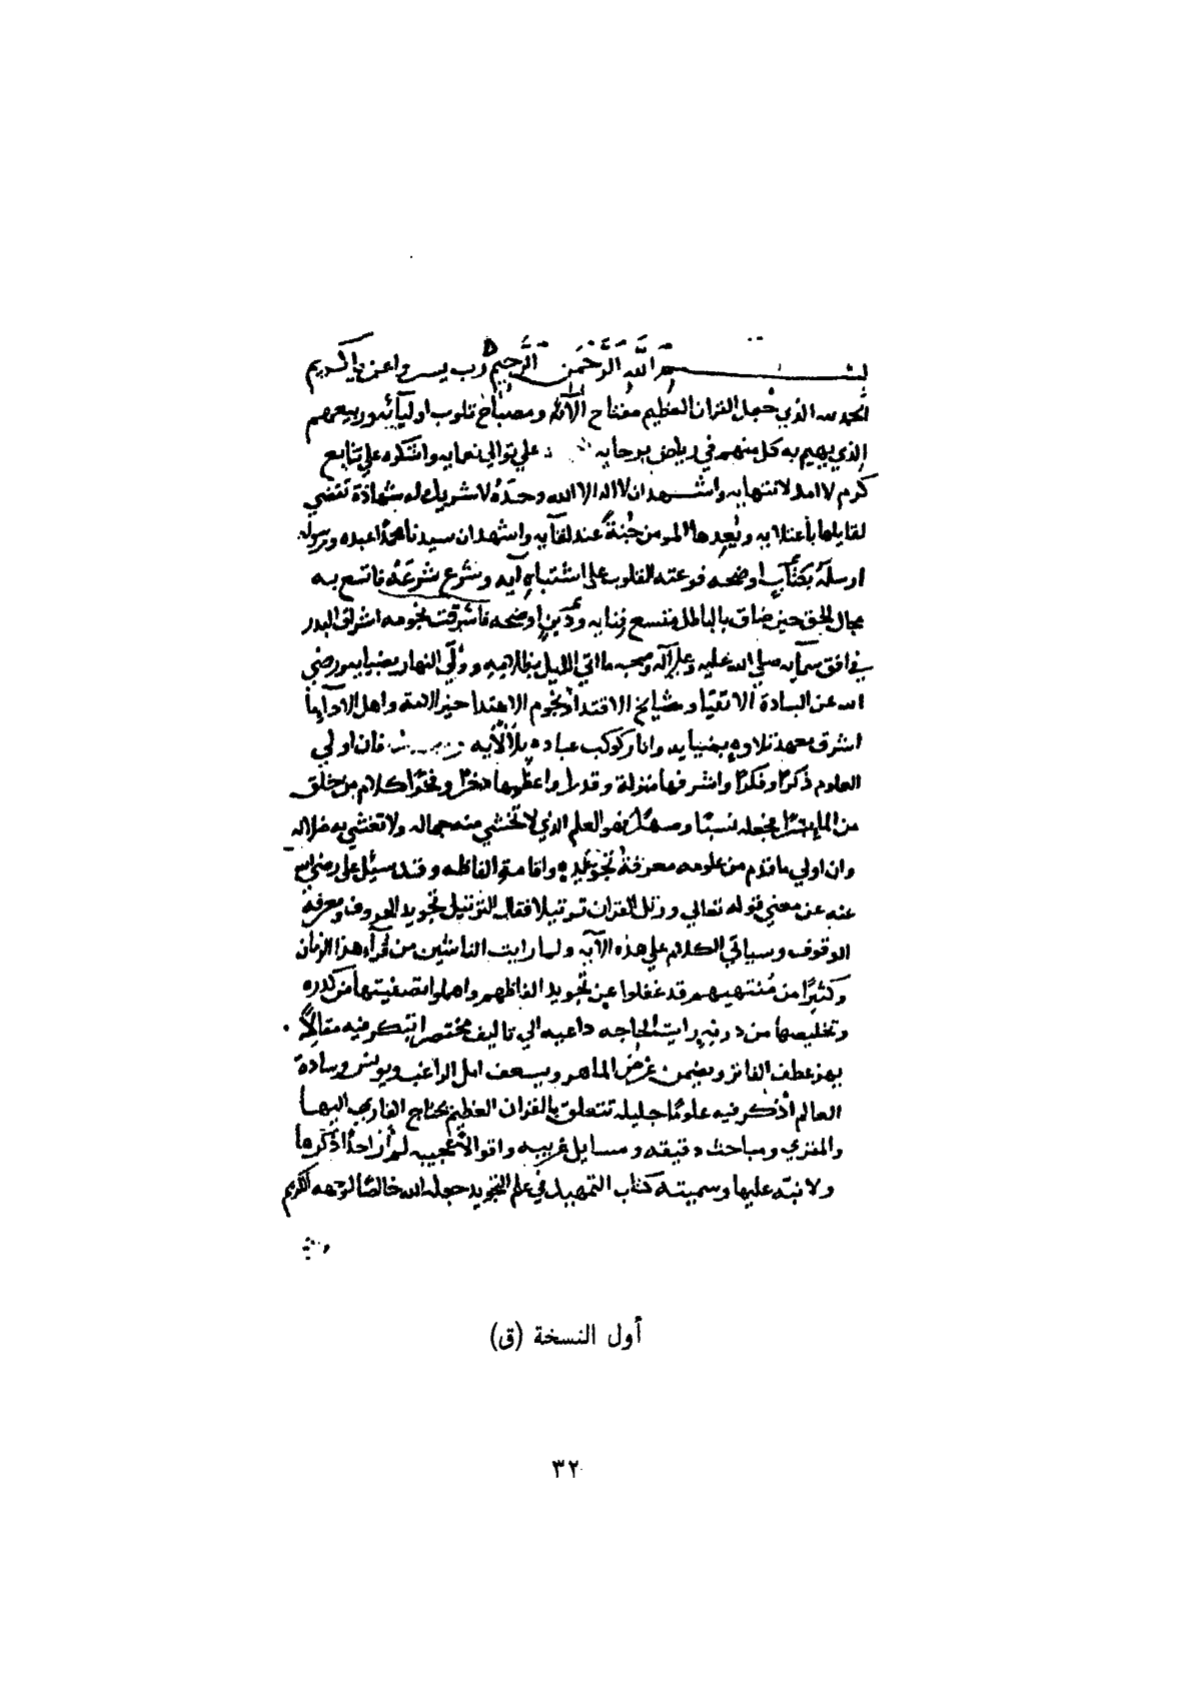 بسم الله الرحمن الرحيم رب يسر واعن يا كريم
الحمد لله الذي جعل القران العظيم مفتاح الآئه ومصباح قلوب اوليآئه وربيعهم
الذي يهيم به كل منهم في رياض برحايه علي توالي نعمايه واشكره علي تتابع
كرم لا امد لانتهايه واشهد ان لا اله الا الله وحده لا شريك له شهادة تقضي
لقايلها باعتلايه ويعدها المومن جنة عند لقآيه واشهد ان سيدنا محمدا عبده ورسوله
ارسله بكتاب اوضحه فوعته القلوب علي اشتباه آيه وشرع شرعه فاتسع به
مجال الحق حين ضاق بالباطل متسع فنايه ودين اوضحه فاشرقت نجومه اشراق البدر
في افق سمآيه صلي الله عليه وعلي آله وصحبه ما اتي الليل بظلامه وولي النهار بضيايه ورضي
الله عن السادة الاتقيا ومشايخ الاقتدا ونجوم الاهتدا خير الامة واهل الادآ ما
اشرق معهد تلاوه بضيايه وانار كوكب عباده بلألآيه فان اولي
العلوم ذكرا وفكرا واشرفها منزلة وقدرا واعظمها ذخرا وفخرا كلام من خلق
من الما بشرا فجعله نسبا وصهرا فهو العلم الذي لا تخشي منه جهاله ولا تغشي به ضلاله
وان اولي ما قدم من علومه معرفة تجويده واقامة الفاظه وقد سيل علي رضي الله
عنه عن معني قوله تعالي ورتل القران ترتيلا فقال الترتيل تجويد الحروف ومعرفة
الوقوف وسياتي الكلام علي هذه الآيه ولما رايت الناشئين من قرآء هذا الزمان
وكثيرا من منتهيهم قد غفلوا عن تجويد الفاظهم واهملوا تصفيتها من كدره
وتخليصها من درنه رايت الحاجه داعيه الي تاليف مختصر ابتكر فيه مقالا
يهز عطف الفاتر ويضمن غرض الماهر ويسعف امل الراغب ويونس وسادة
العالم اذكر فيه علوما جليله تتعلق بالقران العظيم يحتاج القاري اليها
والمقري ومباحث دقيقه ومسايل غريبه واقوالا عجيبه لم ار احدا ذكرها
ولا نبه عليها وسميته كتاب التمهيد في علم التجويد جعله الله خالصا لوجهه الكريم
أول النسخة (ق)
٣٢